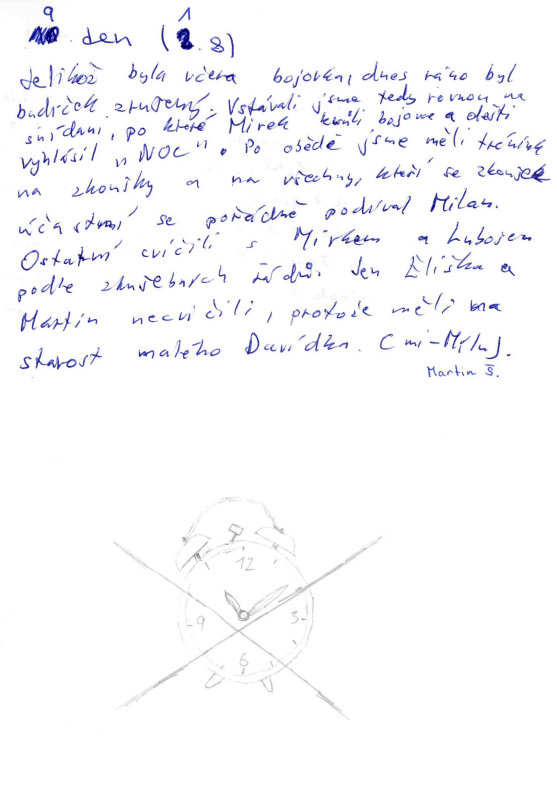 9. den (1.8)
Jelikož byla včera bojovka, dnes ráno byl
budíček zrušený. Vstávali jsme tedy rovnou na
snídani, po které Mirek kvůli bojovce a dešti
vyhlásil "NOC". Po obědě jsme měli trénink
na zkoušky a na všechny, kteří se zkoušek
účastní se pořádně podíval Milan.
Ostatní cvičili s Mirkem a Lubošem
podle zkušebních řádů. Jen Eliška a
Martin necvičili, protože měli na
starost malého Davídka.
Martin Š.
12
3
6
9